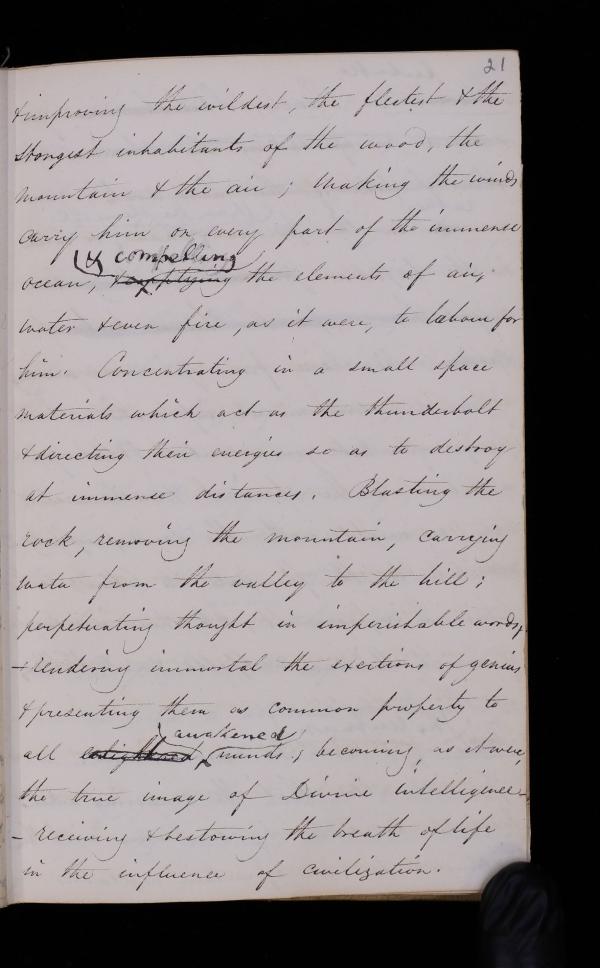 21
& improving the wildest, the fleetest & the
strongest inhabitants of the wood, the
mountain & the air; making the winds
carry him on every part of the immense
(& compelling
ocean, & applying the elements of air,
water & even fire, as it were, to labour for
him. Concentrating in a small space
materials which act as the thunderbolt
& directing their energies so as to destroy
at immense distances. Blasting the
rock, removing the mountain, carrying
water from the valley to the hill;
perpetuating thought in imperishable words,
- rendering immortal the exertions of genius
& presenting them as common property to
awakened
all enlightened minds; becoming, as it were,
the true image of Divine intelligence -
- receiving & bestowing the breath of life
in the influence of civilization.